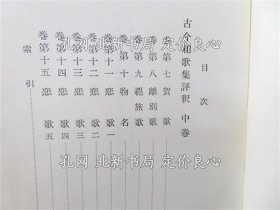 古今和歌集評釈 中巻
目次
巻第七 賀歌
巻第八 離別歌
巻第九 羇旅歌
巻第十 物名
巻第十一 恋歌一
巻第十二 恋歌二
巻第十三 恋歌三
巻第十四 恋歌四
巻第十五 恋歌五
索引
孔网 北北新新 古房